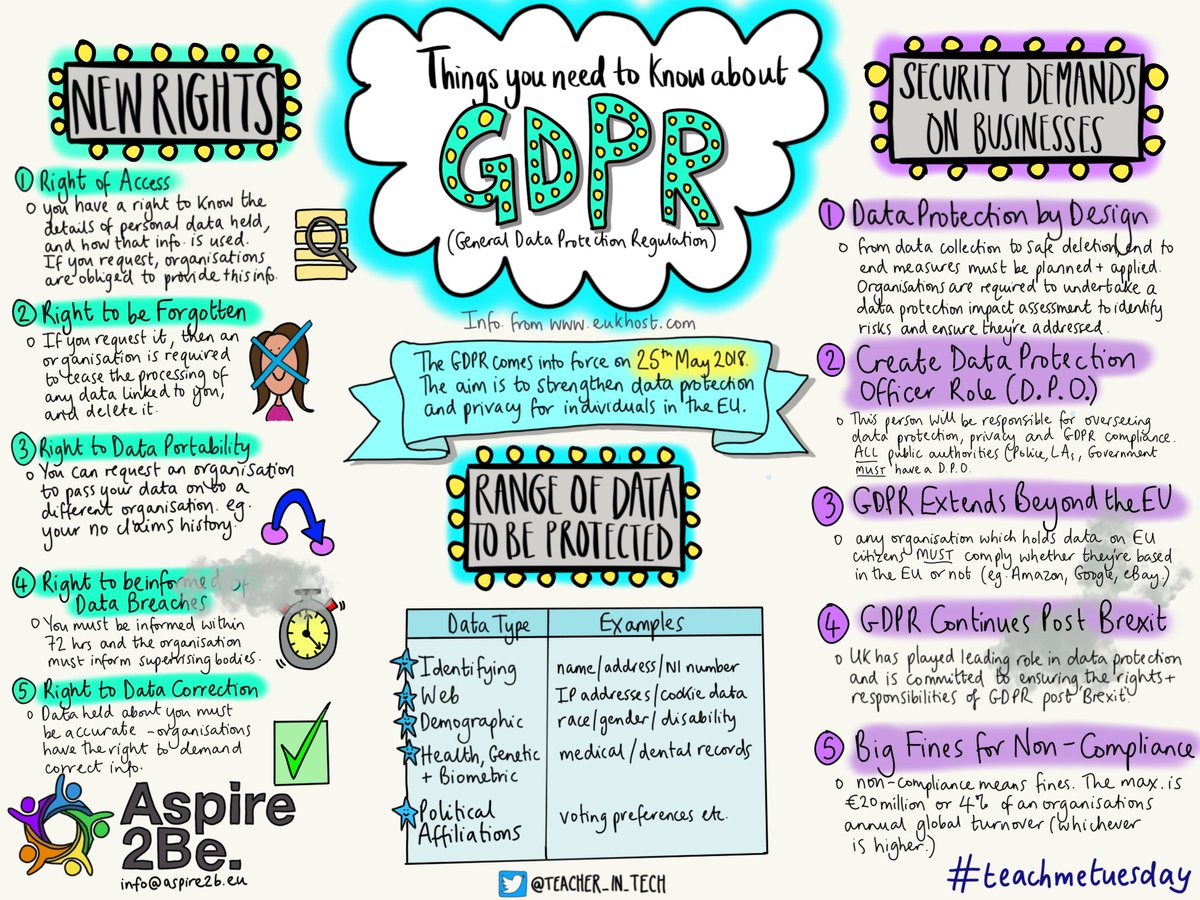 Things you need to know about
GDPR
(General Data Protection Regulation)
Info. from www.eukhost.com
The GDPR comes into force on 25th May 2018.
The aim is to strengthen data protection
and privacy for individuals in the EU.
NEW RIGHTS
1 Right of Access
you have a right to know the
details of personal data held,
and how that info. is used.
If you request, organisations
are obliged to provide this info.
2 Right to be Forgotten
If you request it, then an
organisation is required
to cease the processing of
any data linked to you,
and delete it.
3 Right to Data Portability
You can request an organisation
to pass your data on to a
different organisation. eg.
your no claims history.
4 Right to be informed of
Data Breaches
You must be informed within
72 hrs and the organisation
must inform supervising bodies.
5 Right to Data Correction
Data held about you must
be accurate - organisations
have the right to demand
correct info.
Aspire
2Be.
info@aspire2b.eu
RANGE OF DATA
TO BE PROTECTED
Data Type Examples
Identifying name/address/NI number
Web IP addresses/cookie data
Demographic race/gender/disability
Health, Genetic medical/dental records
+ Biometric
Political voting preferences etc.
Affiliations
@TEACHER_IN_TECH
SECURITY DEMANDS
ON BUSINESSES
1 Data Protection by Design
from data collection to safe deletion, end to
end measures must be planned + applied.
Organisations are required to undertake a
data protection impact assessment to identify
risks and ensure they're addressed.
2 Create Data Protection
Officer Role (D.P.O.)
This person will be responsible for overseeing
data protection, privacy and GDPR compliance.
ALL public authorities (Police, LAs, Government
MUST have a D.P.O.
3 GDPR Extends Beyond the EU
any organisation which holds data on EU
citizens MUST comply whether they're based
in the EU or not (eg. Amazon, Google, eBay.)
4 GDPR Continues Post Brexit
UK has played leading role in data protection
and is committed to ensuring the rights +
responsibilities of GDPR post Brexit.
5 Big Fines for Non-Compliance
non-compliance means fines. The max. is
€20 million or 4% of an organisations
annual global turnover (whichever
is higher.)
#teachmetuesday